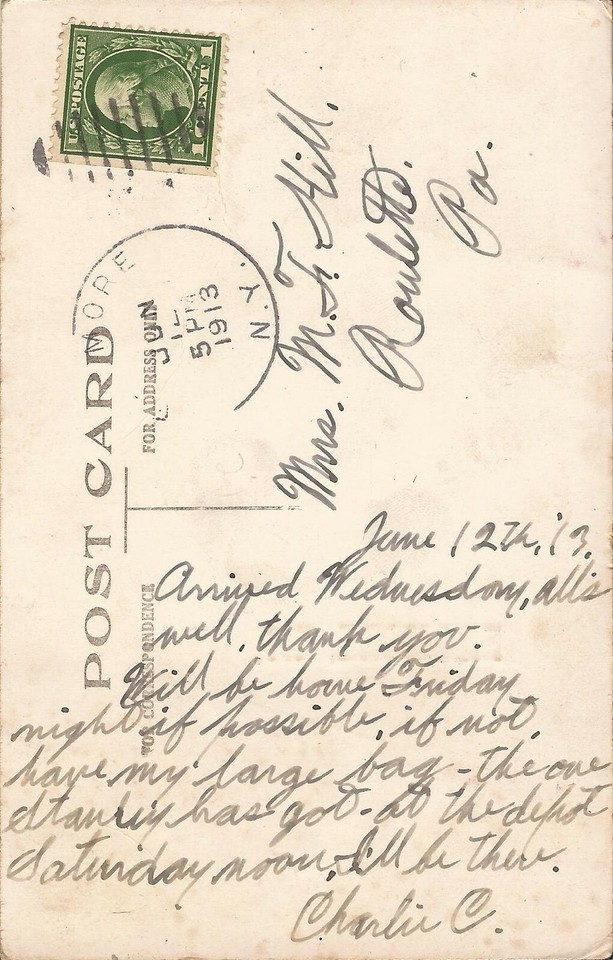 U.S. POSTAGE
1 CENT 1
MORE
JUN
5 PM
1913
N.Y.
POST CARD
FOR ADDRESS ONLY
FOR CORRESPONDENCE
Mrs. M. F. Hill,
Roulette.
Pa.
June 12th, 13.
Arrived Wednesday, all's
well, thank you.
Will be home Friday
night if possible, if not,
have my large bag - the one
Stanley has got - at the depot
Saturday noon, I'll be there.
Charlie C.